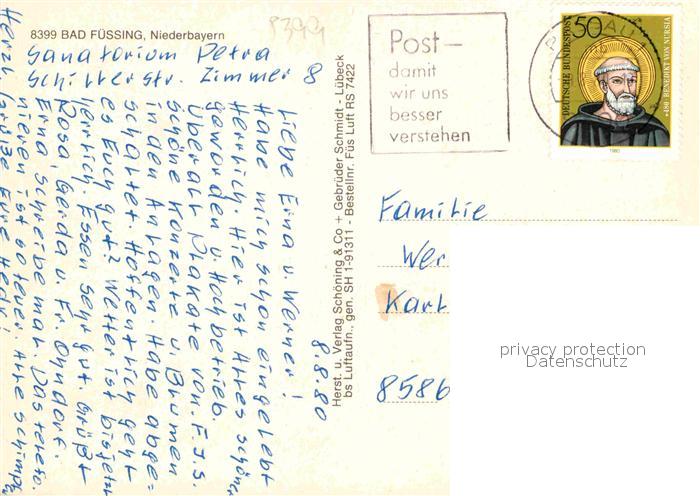 8399 BAD FÜSSING, Niederbayern
8399
Sanatorium Petra
Schillerstr. Zimmer 8
8.8.80
Liebe Erna u. Werner!
Habe mich schon eingelebt
Herrlich. Hier ist alles schöner
geworden u. Hochbetrieb.
Überall Plakate von F.J.S.
Schöne Konzerte u. Blumen
in den Anlagen. Habe abge=
schaltet. Hoffentlich geht
es Euch gut? Wetter ist bisjetzt
herrlich. Essen sehr gut. Grüßt
Rosa, Gerda u. Fr.
Erna schreibe mal. Das telefo.
nieren ist so teuer. Alle schimpf.
Herzl. Grüße Eure Hedi!
Herst. u. Verlag Schöning & Co + Gebrüder Schmidt - Lübeck
bs Luftaufn., gen. SH 1-91311 - Bestellnr. Füs Luft RS 7422
Post –
damit
wir uns
besser
verstehen
50
DEUTSCHE BUNDESPOST
*480 BENEDIKT VON NURSIA
1980
Familie
Wer
Karl
8586
privacy protection
Datenschutz